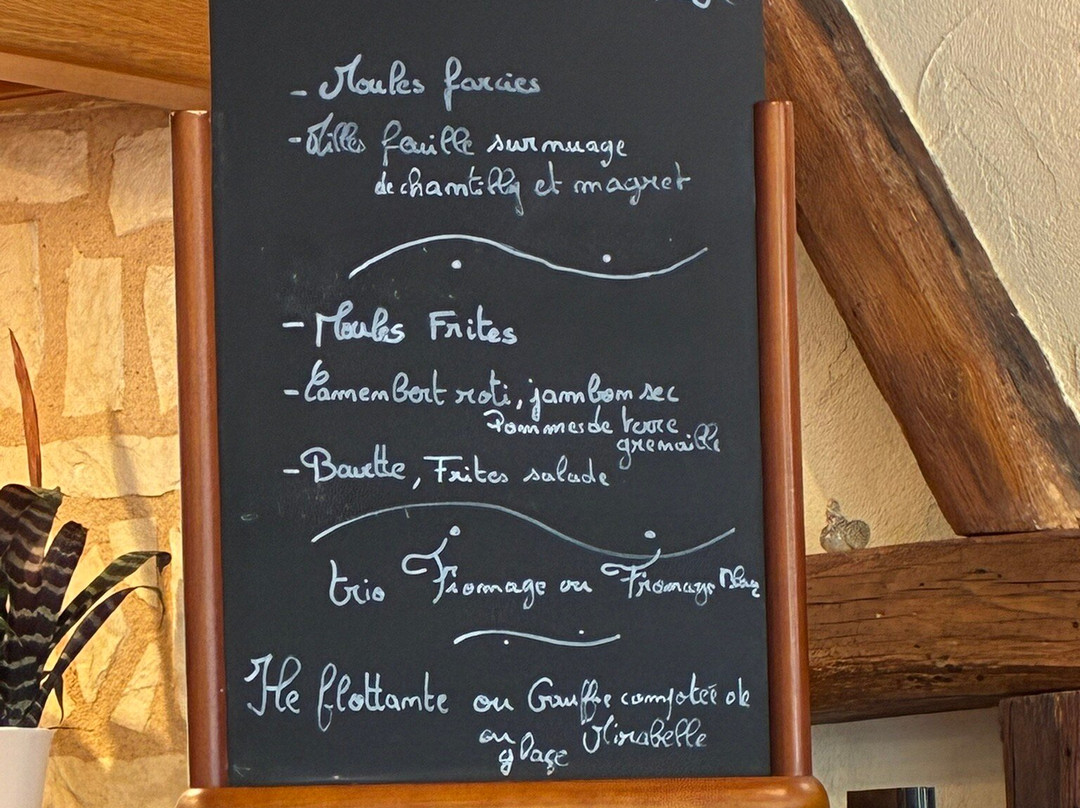 - Moules farcies
- Milles feuille sur nuage
de chantilly et magret
- Moules Frites
- Camembert roti, jambon sec
Pommes de terre
grenaille
- Bavette, Frites salade
trio Fromage ou Fromage Blanc
Ile flottante ou Gauffre compotée de
ou Mirabelle
glaçe